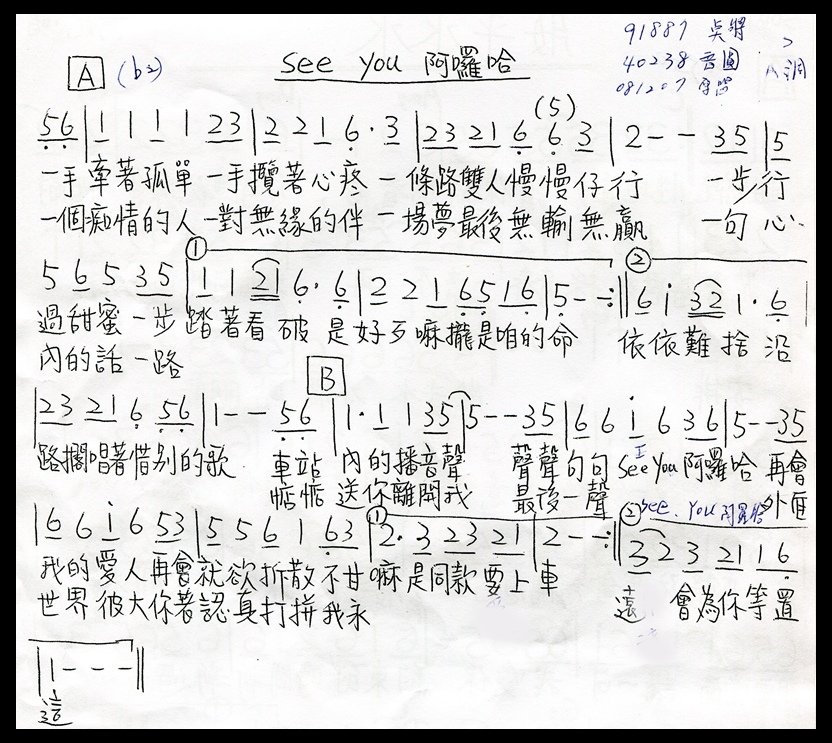 91887 吳將
40238 音圓
081207
A調
A (b2) See You 阿囉哈
(5)
56 | 1 1 1 1 23 | 2 2 1 6· 3 | 23 21 6 6 3 | 2 - - 35 | 5
一手牽著孤單 一手攬著心疼 一條路雙人慢慢仔行 一步行
一個痴情的人 一對無緣的伴 一場夢最後無輸無贏 一句心
① ②
5 6 5 35 | 1 1 21 6· 6 | 2 2 1 65 16 | 5 - - :|| 6 i 32 1· 6
過甜蜜一步踏著看破是好歹嘛攏是咱的命 依依難捨 沿
內的話一路
B
| 23 21 6 56 | 1 - - 56 | 1· 1 1 35 | 5 - - 35 | 6 6 i 6 36 | 5 - - 35
路擱唱著惜別的歌 車站 內的播音聲 聲聲句句 See You 阿囉哈 再會
惦惦 送你離開我 最後一聲 See You 阿囉哈 外面
① ②
| 6 6 i 6 53 | 5 5 6 1 63 | 2· 3 23 21 | 2 - - :|| 3 2 3 21 1 6
我的愛人再會就欲拆散不甘嘛是同款要上車 遠 會為你等置
世界彼大你著認真打拼我永
| 1 - - - ||
這